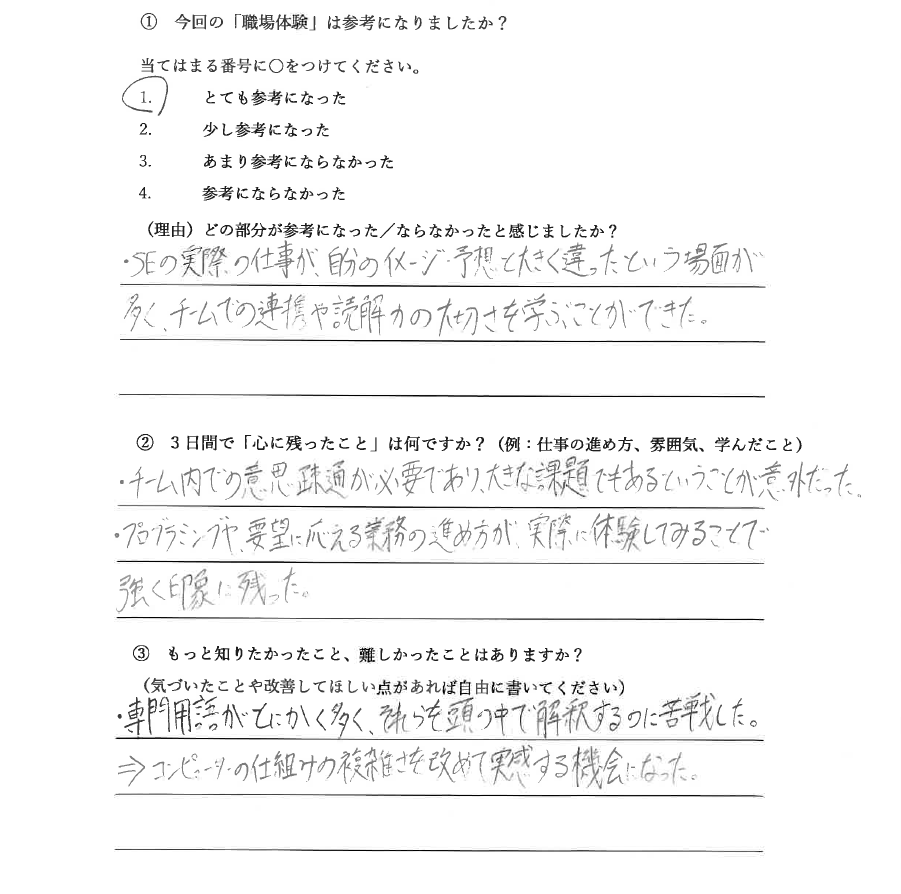 ① 今回の「職場体験」は参考になりましたか？
当てはまる番号に○をつけてください。
1. とても参考になった
2. 少し参考になった
3. あまり参考にならなかった
4. 参考にならなかった
（理由）どの部分が参考になった／ならなかったと感じましたか？
・SEの実際の仕事が、自分のイメージ・予想と大きく違ったという場面が
多く、チームでの連携や読解力の大切さを学ぶことができた。
② 3日間で「心に残ったこと」は何ですか？（例：仕事の進め方、雰囲気、学んだこと）
・チーム内での意思疎通が必要であり、大きな課題でもあるということが意外だった。
・プログラミングや、要望に応える業務の進め方が、実際に体験してみることで
強く印象に残った。
③ もっと知りたかったこと、難しかったことはありますか？
（気づいたことや改善してほしい点があれば自由に書いてください）
・専門用語がとにかく多く、それらを頭の中で解釈するのに苦戦した。
⇒コンピューターの仕組みの複雑さを改めて実感する機会になった。